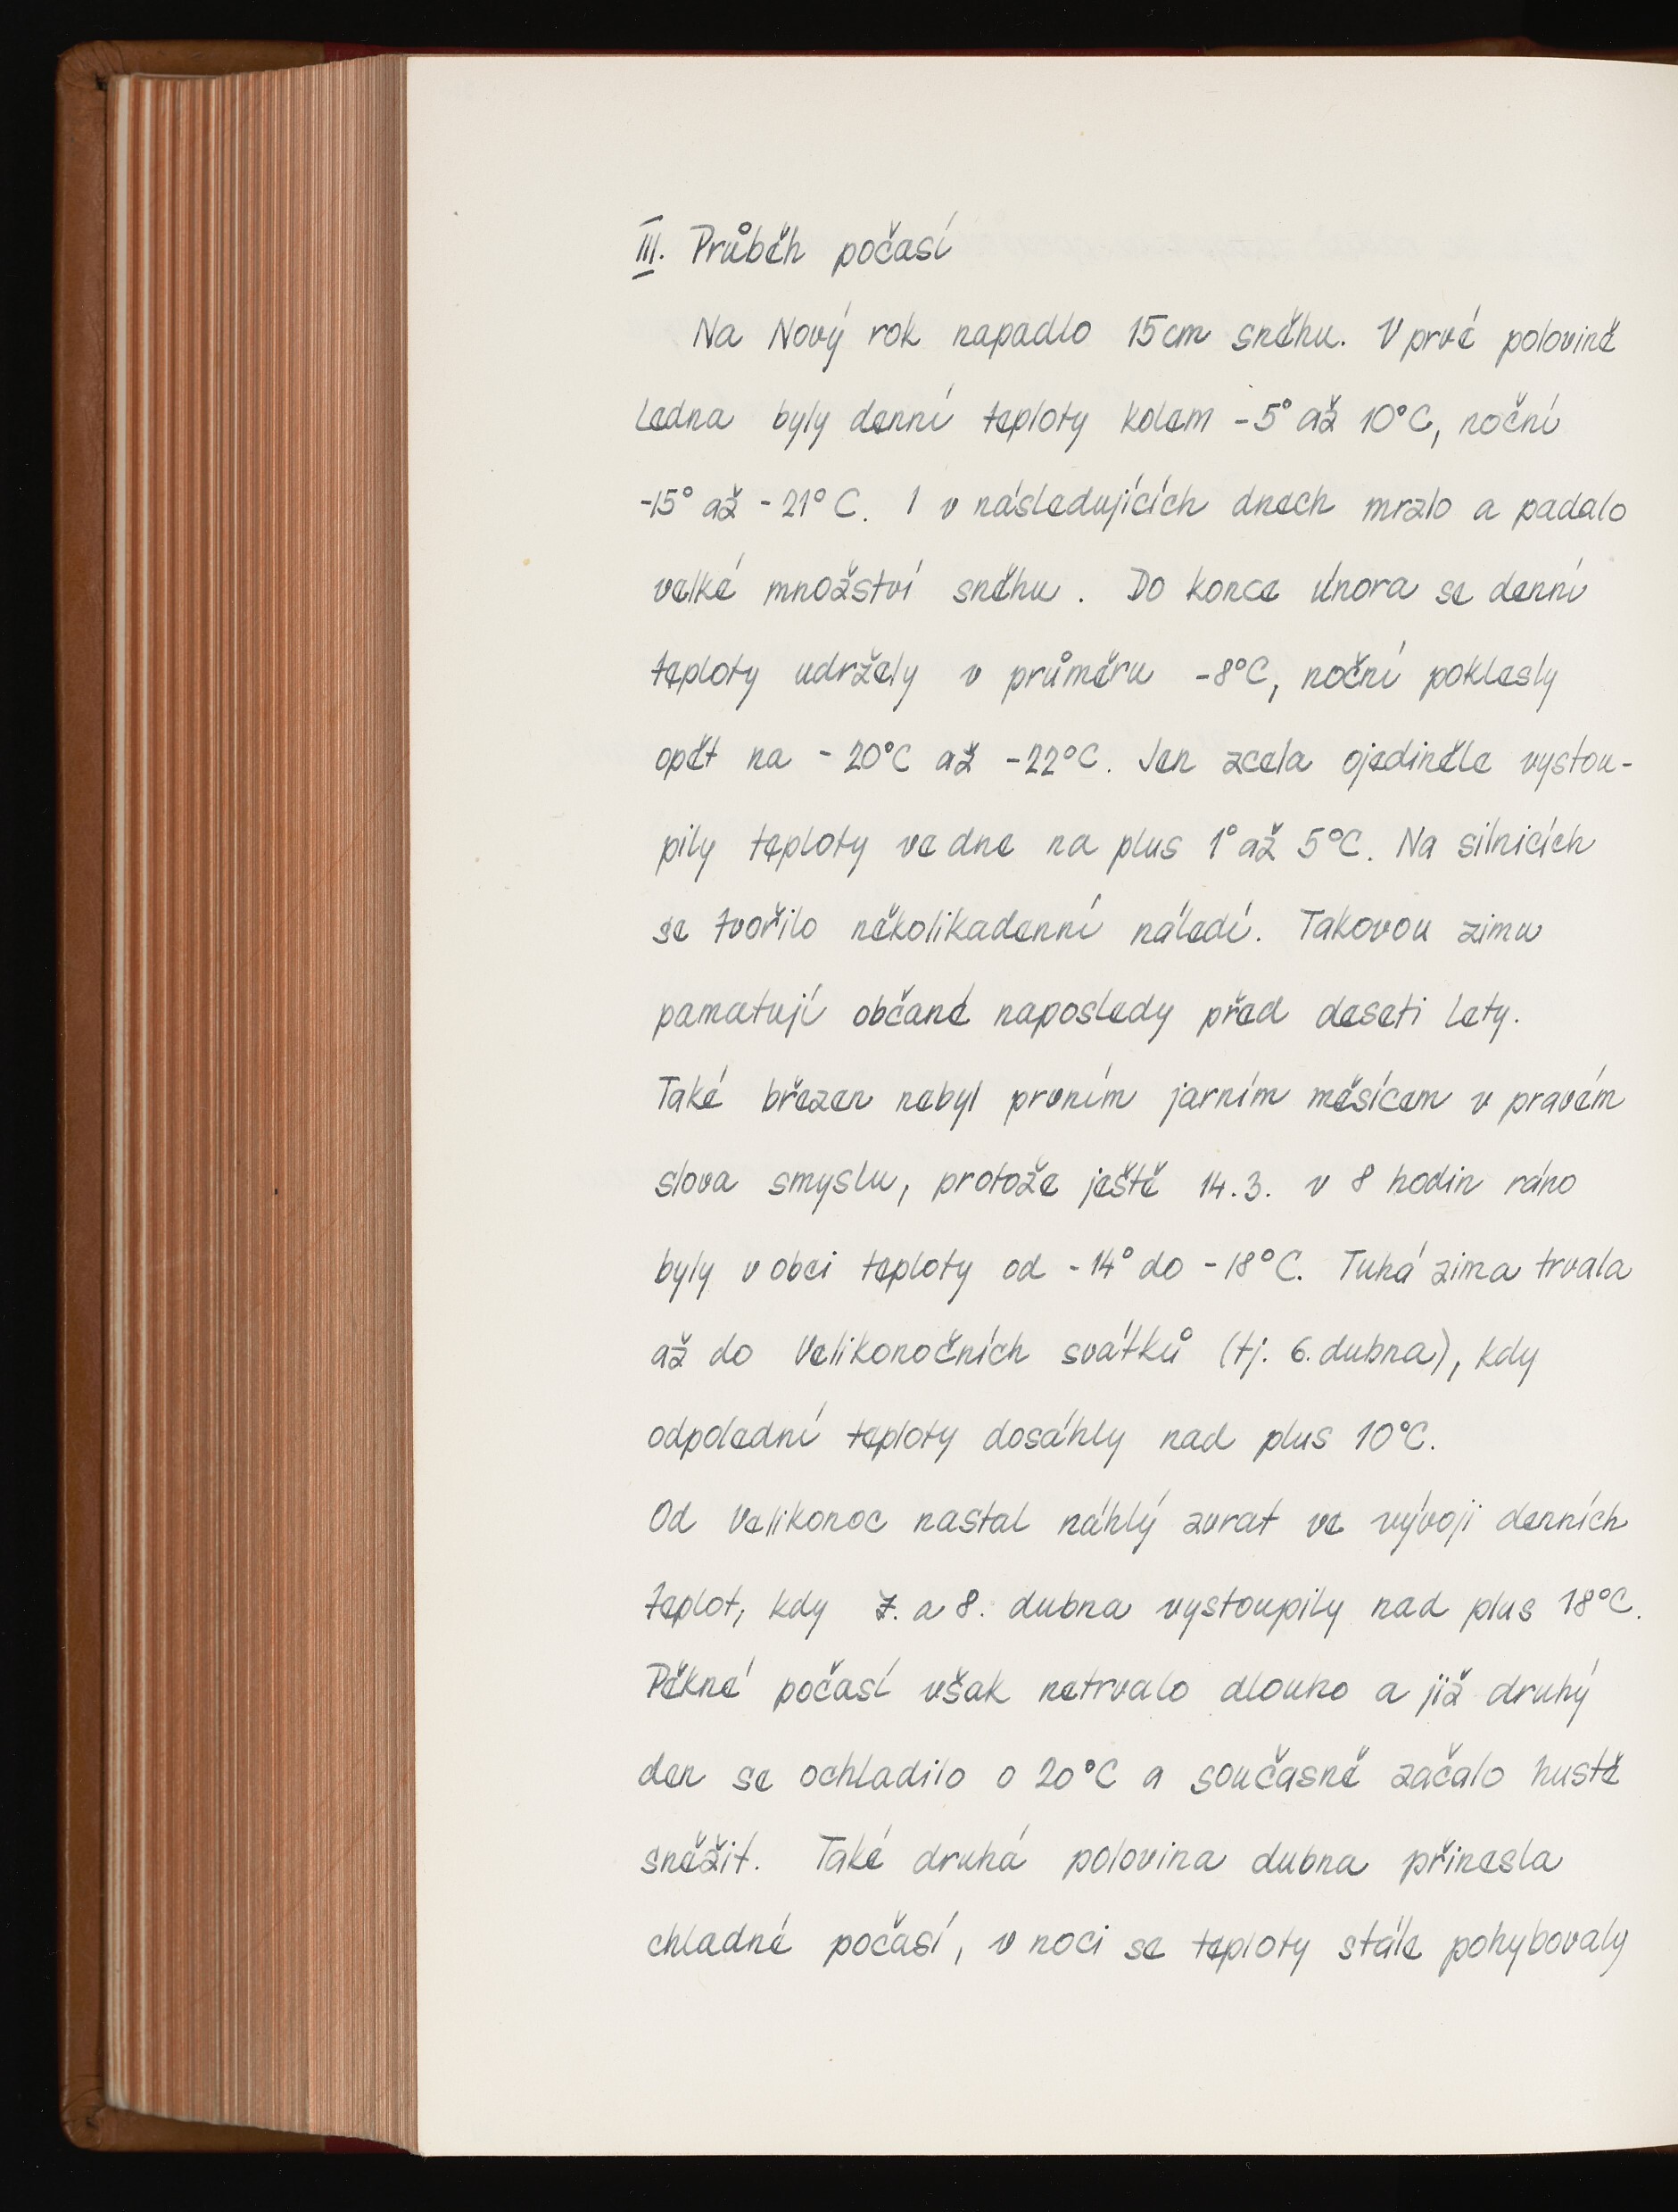 III. Průběh počasí
Na Nový rok napadlo 15cm sněhu. V prvé polovině
ledna byly denní teploty kolem -5° až 10°C, noční
-15° až -21°C. I v následujících dnech mrzlo a padalo
velké množství sněhu. Do konce února se denní
teploty udržely v průměru -8°C, noční poklesly
opět na -20°C až -22°C. Jen zcela ojediněle vystou-
pily teploty ve dne na plus 1° až 5°C. Na silnicích
se tvořilo několikadenní náledí. Takovou zimu
pamatují občané naposledy před deseti lety.
Také březen nebyl prvním jarním měsícem v pravém
slova smyslu, protože ještě 14.3. v 8 hodin ráno
byly v obci teploty od -14° do -18°C. Tuhá zima trvala
až do Velikonočních svátků (tj. 6. dubna), kdy
odpolední teploty dosáhly nad plus 10°C.
Od Velikonoc nastal náhlý zvrat ve vývoji denních
teplot, kdy 7. a 8. dubna vystoupily nad plus 18°C.
Pěkné počasí však netrvalo dlouho a již druhý
den se ochladilo o 20°C a současně začalo hustě
sněžit. Také druhá polovina dubna přinesla
chladné počasí, v noci se teploty stále pohybovaly